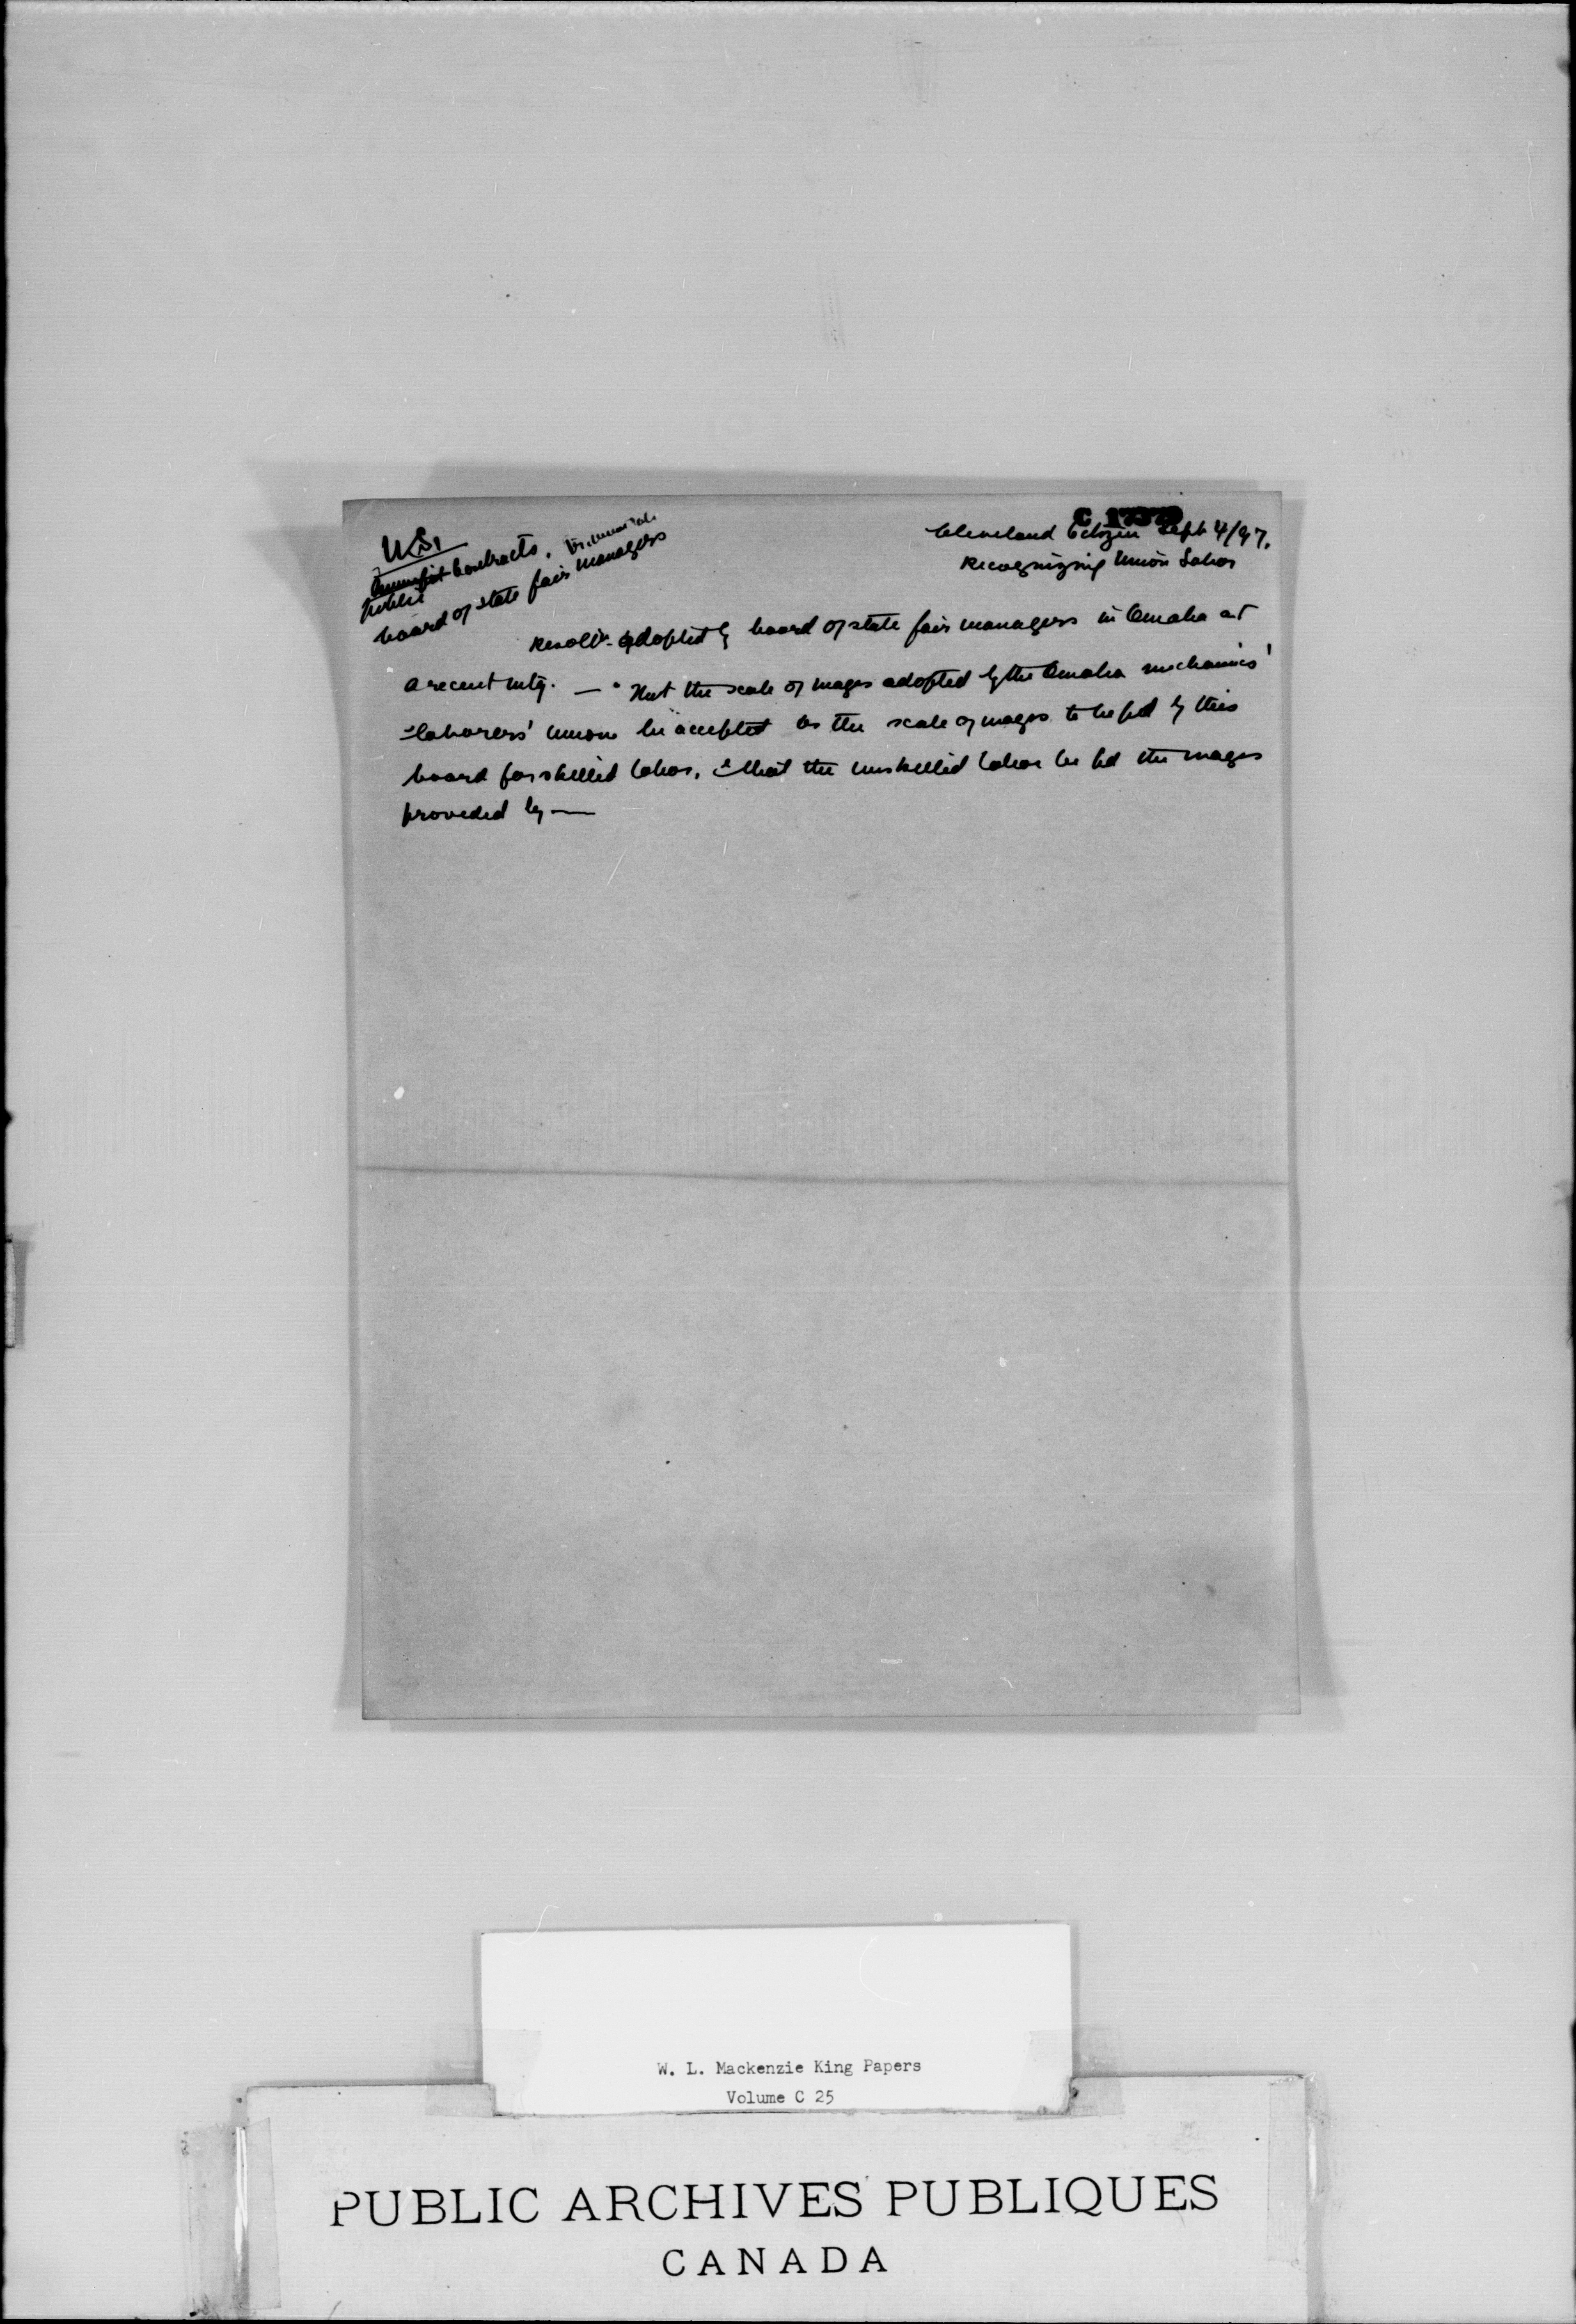 C 17379
U.S.
Public Contracts.
board of state fair managers
Cleveland Citizen Sept 4/97.
Recognizing Union Labor
Resol'n adopted by board of state fair managers in Omaha at
a recent mtg. — "That the scale of wages adopted by the Omaha mechanics'
& laborers' union be accepted as the scale of wages to be pd by this
board for skilled labor, & that the unskilled labor be pd the wages
provided by —
W. L. Mackenzie King Papers
Volume C 25
PUBLIC ARCHIVES PUBLIQUES
CANADA